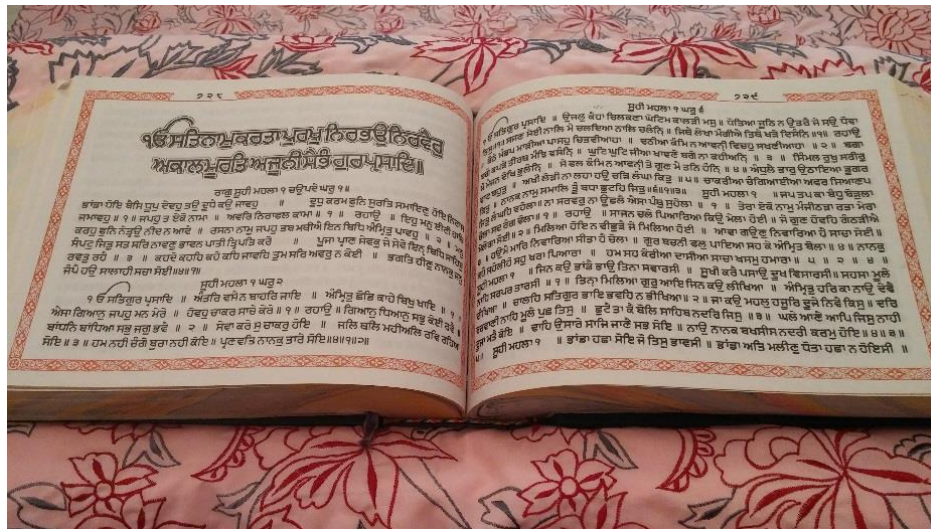 ੭੨੮
ੴ ਸਤਿਨਾਮੁ ਕਰਤਾ ਪੁਰਖੁ ਨਿਰਭਉ ਨਿਰਵੈਰੁ
ਅਕਾਲ ਮੂਰਤਿ ਅਜੂਨੀ ਸੈਭੰ ਗੁਰਪ੍ਰਸਾਦਿ॥
ਰਾਗੁ ਸੂਹੀ ਮਹਲਾ ੧ ਚਉਪਦੇ ਘਰੁ ੧॥
ਭਾਂਡਾ ਧੋਇ ਬੈਸਿ ਧੂਪੁ ਦੇਵਹੁ ਤਉ ਦੂਧੈ ਕਉ ਜਾਵਹੁ ॥ ਦੂਧੁ ਕਰਮ ਫੁਨਿ ਸੁਰਤਿ ਸਮਾਇਣੁ ਹੋਇ ਨਿਰਾਸ
ਜਮਾਵਹੁ ॥੧॥ ਜਪਹੁ ਤ ਏਕੋ ਨਾਮਾ ॥ ਅਵਰਿ ਨਿਰਾਫਲ ਕਾਮਾ ॥੧॥ ਰਹਾਉ ॥ ਇਹੁ ਮਨੁ ਈਟੀ ਹਾਥਿ
ਕਰਹੁ ਫੁਨਿ ਨੇਤ੍ਰਉ ਨੀਦ ਨ ਆਵੈ ॥ ਰਸਨਾ ਨਾਮੁ ਜਪਹੁ ਤਬ ਮਥੀਐ ਇਨ ਬਿਧਿ ਅੰਮ੍ਰਿਤੁ ਪਾਵਹੁ ॥੨॥ ਮਨੁ
ਸੰਪਟੁ ਜਿਤੁ ਸਤ ਸਰਿ ਨਾਵਣੁ ਭਾਵਨ ਪਾਤੀ ਤ੍ਰਿਪਤਿ ਕਰੇ ॥ ਪੂਜਾ ਪ੍ਰਾਣ ਸੇਵਕੁ ਜੇ ਸੇਵੇ ਇਨ੍ ਬਿਧਿ ਸਾਹਿਬੁ
ਰਵਤੁ ਰਹੈ ॥੩॥ ਕਹਦੇ ਕਹਹਿ ਕਹੇ ਕਹਿ ਜਾਵਹਿ ਤੁਮ ਸਰਿ ਅਵਰੁ ਨ ਕੋਈ ॥ ਭਗਤਿ ਹੀਣੁ ਨਾਨਕੁ ਜਨੁ
ਜੰਪੈ ਹਉ ਸਾਲਾਹੀ ਸਚਾ ਸੋਈ॥੪॥੧॥
ਸੂਹੀ ਮਹਲਾ ੧ ਘਰੁ ੨
ੴ ਸਤਿਗੁਰ ਪ੍ਰਸਾਦਿ ॥ ਅੰਤਰਿ ਵਸੈ ਨ ਬਾਹਰਿ ਜਾਇ ॥ ਅੰਮ੍ਰਿਤੁ ਛੋਡਿ ਕਾਹੇ ਬਿਖੁ ਖਾਇ ॥੧॥
ਐਸਾ ਗਿਆਨੁ ਜਪਹੁ ਮਨ ਮੇਰੇ ॥ ਹੋਵਹੁ ਚਾਕਰ ਸਾਚੇ ਕੇਰੇ ॥੧॥ ਰਹਾਉ ॥ ਗਿਆਨੁ ਧਿਆਨੁ ਸਭੁ ਕੋਈ ਰਵੈ ॥
ਬਾਂਧਨਿ ਬਾਂਧਿਆ ਸਭੁ ਜਗੁ ਭਵੈ ॥੨॥ ਸੇਵਾ ਕਰੇ ਸੁ ਚਾਕਰੁ ਹੋਇ ॥ ਜਲਿ ਥਲਿ ਮਹੀਅਲਿ ਰਵਿ ਰਹਿਆ
ਸੋਇ॥੩॥ ਹਮ ਨਹੀ ਚੰਗੇ ਬੁਰਾ ਨਹੀ ਕੋਇ॥ ਪ੍ਰਣਵਤਿ ਨਾਨਕੁ ਤਾਰੇ ਸੋਇ॥੪॥੧॥੨॥
੭੨੯
ਸੂਹੀ ਮਹਲਾ ੧ ਘਰੁ ੬
ੴ ਸਤਿਗੁਰ ਪ੍ਰਸਾਦਿ ॥ ਉਜਲੁ ਕੈਹਾ ਚਿਲਕਣਾ ਘੋਟਿਮ ਕਾਲੜੀ ਮਸੁ ॥ ਧੋਤਿਆ ਜੂਠਿ ਨ ਉਤਰੈ ਜੇ ਸਉ ਧੋਵਾ
ਤਿਸੁ॥੧॥ ਸਜਣ ਸੇਈ ਨਾਲਿ ਮੈ ਚਲਦਿਆ ਨਾਲਿ ਚਲੰਨਿ੍ ॥ ਜਿਥੈ ਲੇਖਾ ਮੰਗੀਐ ਤਿਥੈ ਖੜੇ ਦਿਸੰਨਿ ॥੧॥ ਰਹਾਉ
॥ ਕੋਠੇ ਮੰਡਪ ਮਾੜੀਆ ਪਾਸਹੁ ਚਿਤਵੀਆਹਾ ॥ ਢਠੀਆ ਕੰਮਿ ਨ ਆਵਨੀ੍ ਵਿਚਹੁ ਸਖਣੀਆਹਾ ॥੨॥ ਬਗਾ
ਬਗੇ ਕਪੜੇ ਤੀਰਥ ਮੰਝਿ ਵਸੰਨਿ੍ ॥ ਘੁਟਿ ਘੁਟਿ ਜੀਆ ਖਾਵਣੇ ਬਗੇ ਨਾ ਕਹੀਅਨਿ੍ ॥੩॥ ਸਿੰਮਲ ਰੁਖੁ ਸਰੀਰੁ
ਮੈ ਮੈਜਨ ਦੇਖਿ ਭੁਲੰਨਿ੍ ॥ ਸੇ ਫਲ ਕੰਮਿ ਨ ਆਵਨੀ੍ ਤੇ ਗੁਣ ਮੈ ਤਨਿ ਹੰਨਿ੍ ॥੪॥ ਅੰਧੁਲੈ ਭਾਰੁ ਉਠਾਇਆ ਡੂਗਰ
ਵਾਟ ਬਹੁਤੁ ॥ ਅਖੀ ਲੋੜੀ ਨਾ ਲਹਾ ਹਉ ਚੜਿ ਲੰਘਾ ਕਿਤੁ ॥੫॥ ਚਾਕਰੀਆ ਚੰਗਿਆਈਆ ਅਵਰ ਸਿਆਣਪ
ਕਿਤੁ ॥ ਨਾਨਕ ਨਾਮੁ ਸਮਾਲਿ ਤੂੰ ਬਧਾ ਛੁਟਹਿ ਜਿਤੁ॥੬॥੧॥੩॥ ਸੂਹੀ ਮਹਲਾ ੧ ॥ ਜਪ ਤਪ ਕਾ ਬੰਧੁ ਬੇੜੁਲਾ
ਜਿਤੁ ਲੰਘਹਿ ਵਹੇਲਾ॥ ਨਾ ਸਰਵਰੁ ਨਾ ਊਛਲੈ ਐਸਾ ਪੰਥੁ ਸੁਹੇਲਾ॥੧॥ ਤੇਰਾ ਏਕੋ ਨਾਮੁ ਮੰਜੀਠੜਾ ਰਤਾ ਮੇਰਾ
ਚੋਲਾ ਸਦ ਰੰਗ ਢੋਲਾ॥੧॥ ਰਹਾਉ ॥ ਸਾਜਨ ਚਲੇ ਪਿਆਰਿਆ ਕਿਉ ਮੇਲਾ ਹੋਈ ॥ ਜੇ ਗੁਣ ਹੋਵਹਿ ਗੰਠੜੀਐ
ਮੇਲੇਗਾ ਸੋਈ॥੨॥ ਮਿਲਿਆ ਹੋਇ ਨ ਵੀਛੁੜੈ ਜੇ ਮਿਲਿਆ ਹੋਈ ॥ ਆਵਾ ਗਉਣੁ ਨਿਵਾਰਿਆ ਹੈ ਸਾਚਾ ਸੋਈ॥
੩॥ ਹਉਮੈ ਮਾਰਿ ਨਿਵਾਰਿਆ ਸੀਤਾ ਹੈ ਚੋਲਾ ॥ ਗੁਰ ਬਚਨੀ ਫਲੁ ਪਾਇਆ ਸਹ ਕੇ ਅੰਮ੍ਰਿਤ ਬੋਲਾ ॥੪॥ ਨਾਨਕੁ
ਕਹੈ ਸਹੇਲੀਹੋ ਸਹੁ ਖਰਾ ਪਿਆਰਾ ॥ ਹਮ ਸਹ ਕੇਰੀਆ ਦਾਸੀਆ ਸਾਚਾ ਖਸਮੁ ਹਮਾਰਾ॥੫॥੨॥੪॥
ਸੂਹੀ ਮਹਲਾ ੧ ॥ ਜਿਨ ਕਉ ਭਾਂਡੈ ਭਾਉ ਤਿਨਾ ਸਵਾਰਸੀ ॥ ਸੂਖੀ ਕਰੈ ਪਸਾਉ ਦੂਖ ਵਿਸਾਰਸੀ॥ ਸਹਸਾ ਮੂਲੇ
ਨਾਹਿ ਸਰਪਰ ਤਾਰਸੀ ॥੧॥ ਤਿਨਾ੍ ਮਿਲਿਆ ਗੁਰੁ ਆਇ ਜਿਨ ਕਉ ਲੀਖਿਆ ॥ ਅੰਮ੍ਰਿਤੁ ਹਰਿ ਕਾ ਨਾਉ ਦੇਵੈ
ਦੀਖਿਆ ॥ ਚਾਲਹਿ ਸਤਿਗੁਰ ਭਾਇ ਭਵਹਿ ਨ ਭੀਖਿਆ॥੨॥ ਜਾ ਕਉ ਮਹਲੁ ਹਜੂਰਿ ਦੂਜੇ ਨਿਵੈ ਕਿਸੁ॥ ਦਰਿ
ਦਰਵਾਣੀ ਨਾਹਿ ਮੂਲੇ ਪੁਛ ਤਿਸੁ ॥ ਛੁਟੈ ਤਾ ਕੈ ਬੋਲਿ ਸਾਹਿਬ ਨਦਰਿ ਜਿਸੁ ॥੩॥ ਘਲੇ ਆਣੇ ਆਪਿ ਜਿਸੁ ਨਾਹੀ
ਦੂਜਾ ਮਤੈ ਕੋਇ ॥ ਢਾਹਿ ਉਸਾਰੇ ਸਾਜਿ ਜਾਣੈ ਸਭ ਸੋਇ ॥ ਨਾਉ ਨਾਨਕ ਬਖਸੀਸ ਨਦਰੀ ਕਰਮੁ ਹੋਇ॥੪॥੩॥
੫॥ ਸੂਹੀ ਮਹਲਾ ੧ ॥ ਭਾਂਡਾ ਹਛਾ ਸੋਇ ਜੋ ਤਿਸੁ ਭਾਵਸੀ ॥ ਭਾਂਡਾ ਅਤਿ ਮਲੀਣੁ ਧੋਤਾ ਹਛਾ ਨ ਹੋਇਸੀ ॥